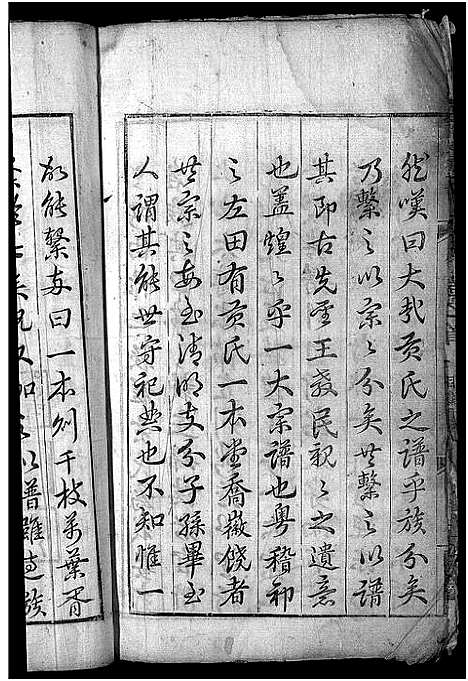 然嘆曰大哉黄氏之譜乎族分矣
乃繫之以宗之分矣其繫之以譜
其即古先聖王教民親之之遺意
也蓋煌之乎一大宗譜也粵稽祁
之左田有黄氏一本堂喬嶽饒者
共宗之每至清明支分子孫畢至
人謂其能世守祀典也不知惟一
故能繫每曰一本則千枝萬葉胥